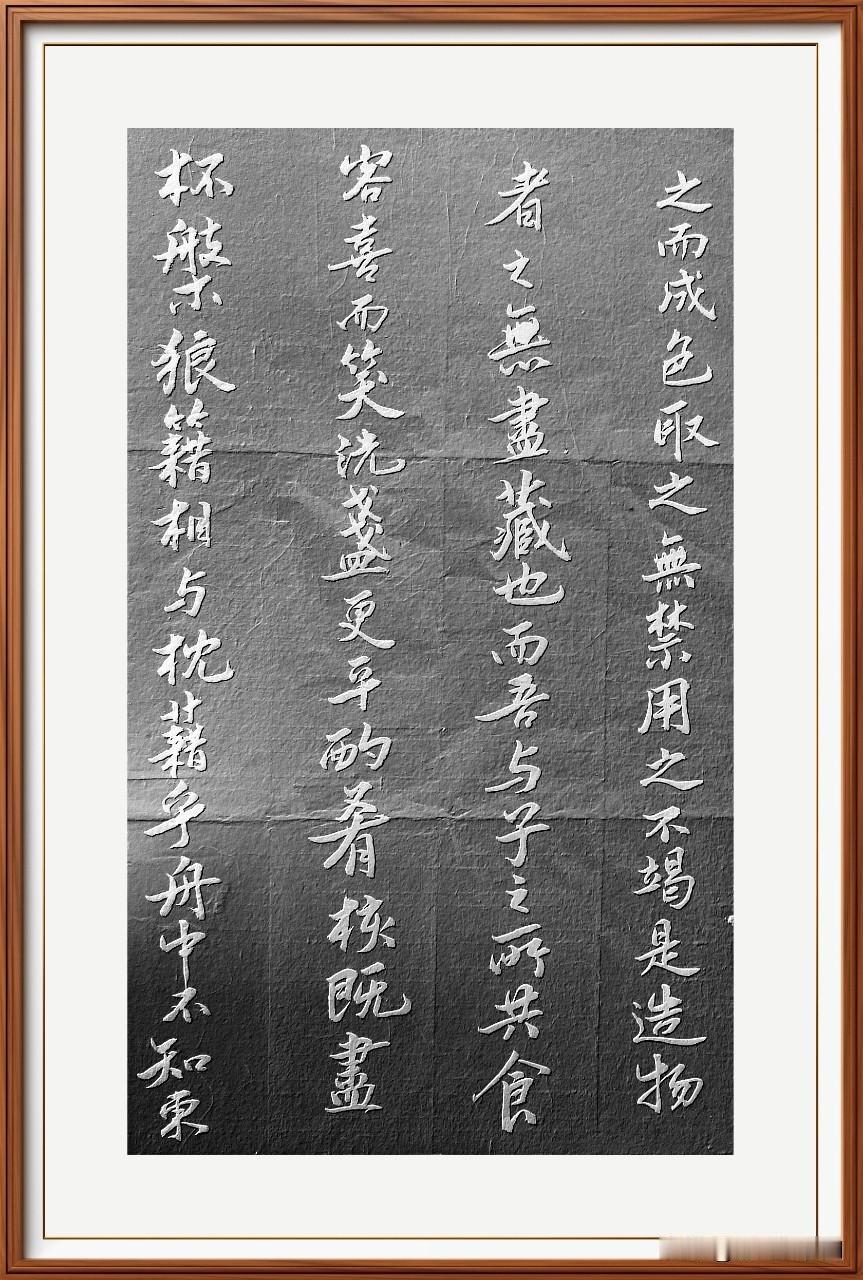 之而成色取之無禁用之不竭是造物
者之無盡藏也而吾与子之所共食
客喜而笑洗盞更平酌肴核既盡
杯槃狼籍相与枕藉乎舟中不知東